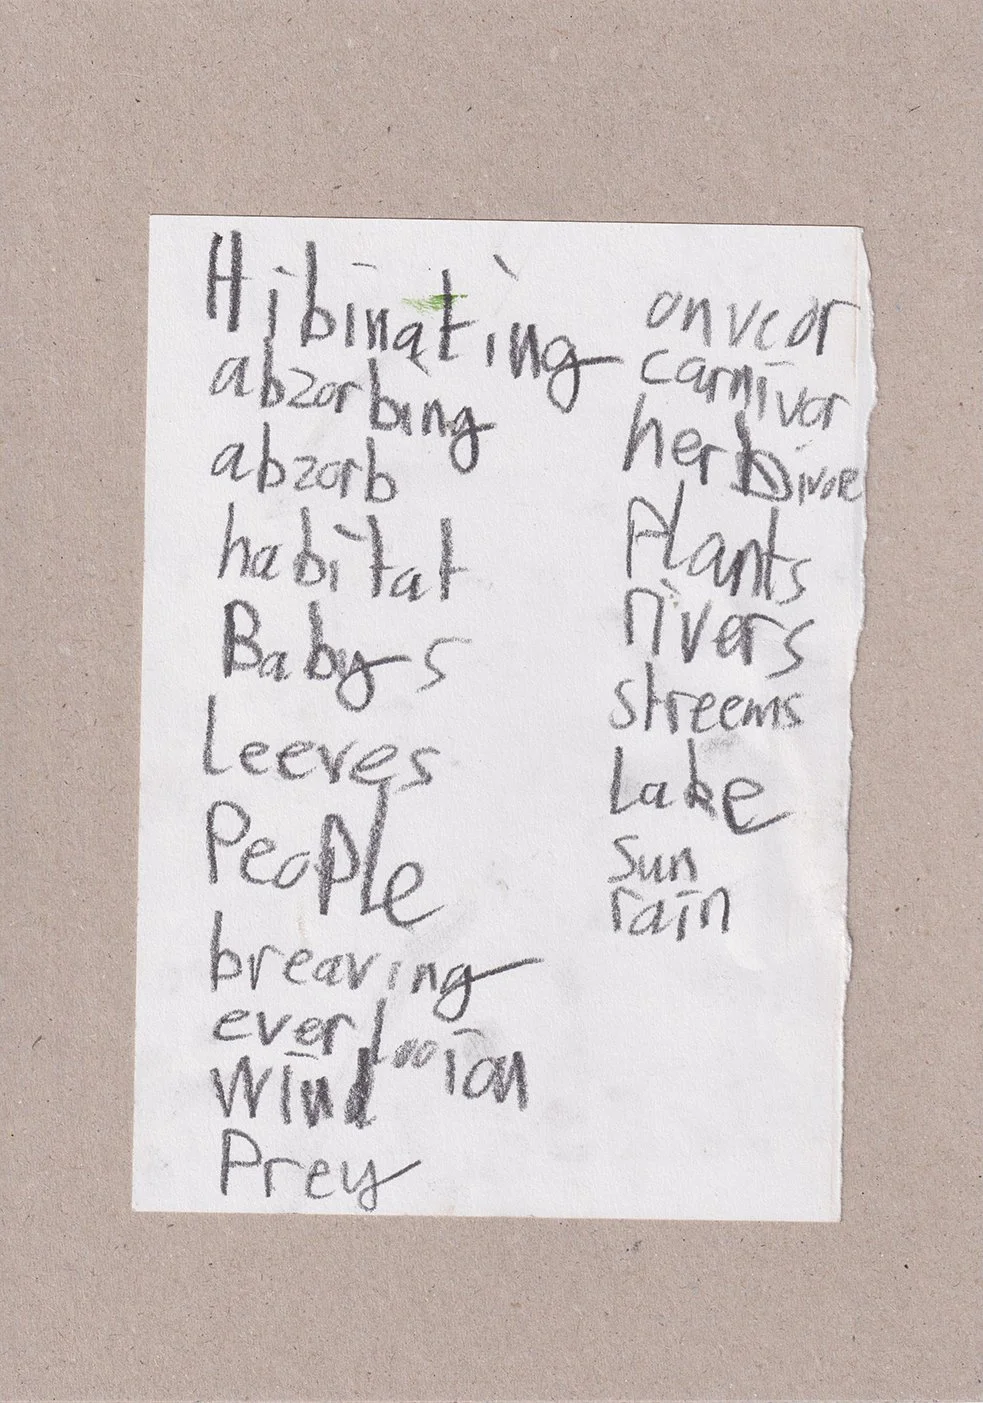 Hibinating
abzorbing
abzorb
habitat
Babys
Leeves
People
breaving
everlooion
Wind
Prey
onveor
carnivor
herbivore
Plants
rivers
streems
Lake
Sun
rain